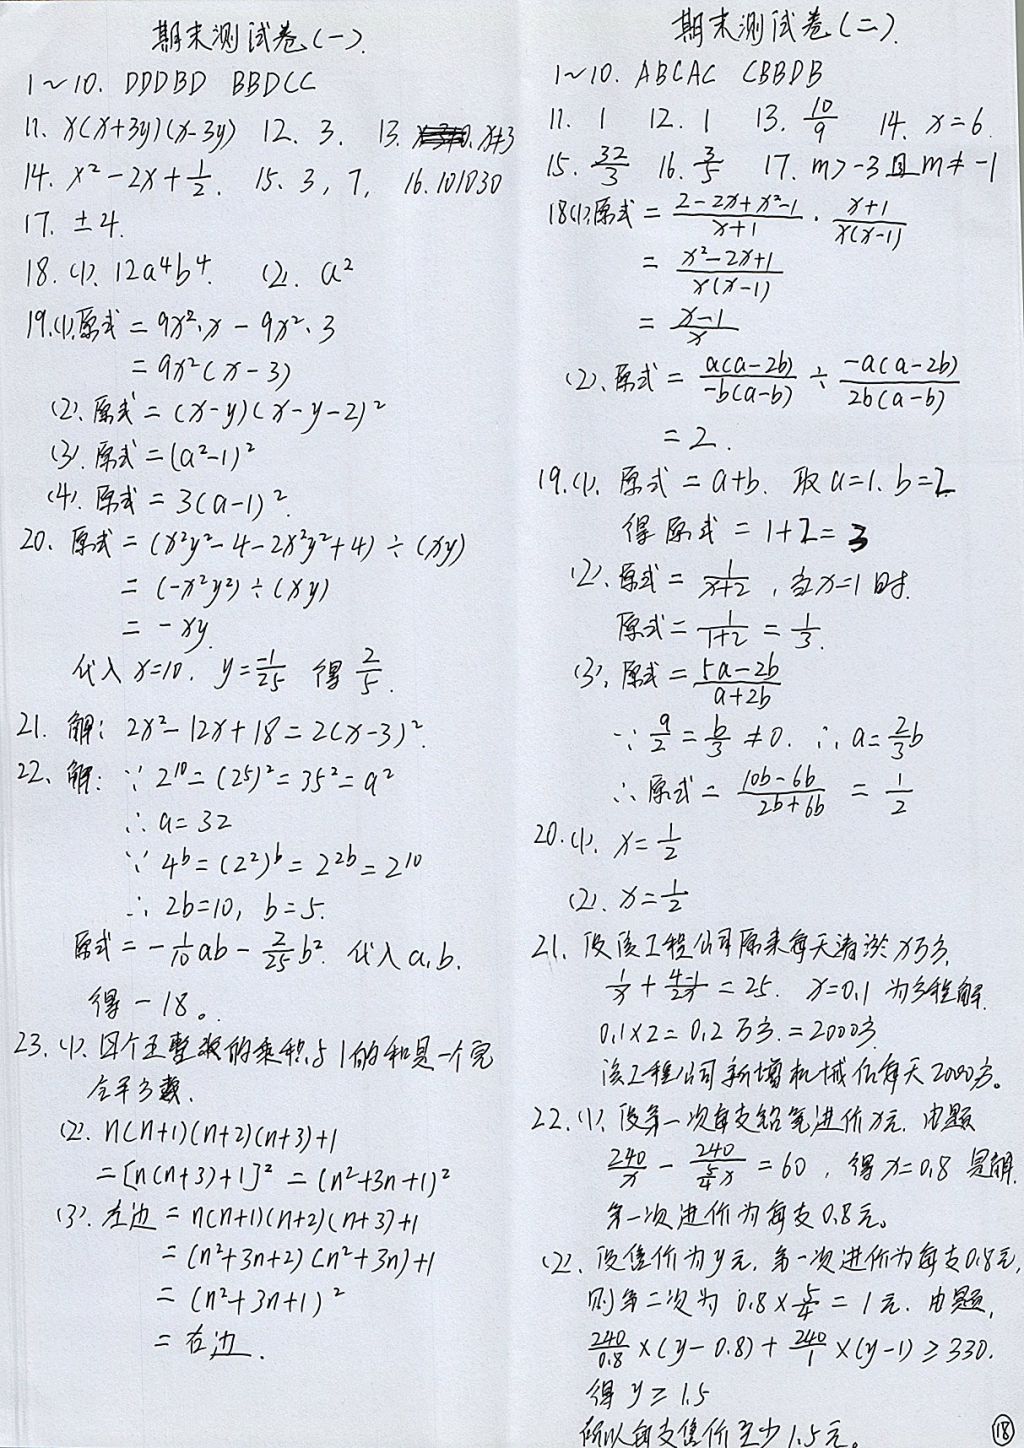 期末测试卷(一).
1~10. DDDBD BBDCC
11. x(x+3y)(x-3y) 12. 3. 13. x+3
14. x²-2x+1/2. 15. 3, 7, 16. 101030
17. ±4.
18. (1). 12a⁴b⁴. (2). a²
19.(1).原式=9x²·x-9x²·3
=9x²(x-3)
(2).原式=(x-y)(x-y-2)²
(3).原式=(a²-1)²
(4).原式=3(a-1)².
20. 原式=(x²y²-4-2x²y²+4)÷(xy)
=(-x²y²)÷(xy)
=-xy.
代入x=10. y=-1/25 得 2/5.
21. 解: 2x²-12x+18=2(x-3)².
22. 解: ∵ 2¹⁰=(25)²=35²=a²
∴ a=32
∵ 4ᵇ=(2²)ᵇ=2²ᵇ=2¹⁰
∴ 2b=10, b=5.
原式=-1/10ab-2/25b². 代入a,b.
得-18。
23. (1). 四个正整数的乘积与1的和是一个完
全平方数.
(2). n(n+1)(n+2)(n+3)+1
=[n(n+3)+1]²=(n²+3n+1)²
(3). 左边=n(n+1)(n+2)(n+3)+1
=(n²+3n+2)(n²+3n)+1
=(n²+3n+1)²
=右边.
期末测试卷(二).
1~10. ABCAC CBBDB
11. 1 12. 1 13. 10/9 14. x=6.
15. 32/3 16. 3/5 17. m>-3且m≠-1
18(1).原式=(2-2x+x²-1)/(x+1)·(x+1)/(x(x-1))
=(x²-2x+1)/(x(x-1))
=(x-1)/x
(2).原式=a(a-2b)/(-b(a-b))÷-a(a-2b)/(2b(a-b))
=2.
19.(1). 原式=a+b. 取a=1. b=2
得原式=1+2=3
(2).原式=1/(x+2), 当x=1时.
原式=1/(1+2)=1/3.
(3).原式=(5a-2b)/(a+2b)
∵ a/2=b/3≠0. ∴ a=2/3b
∴原式=(10b-6b)/(2b+6b)=1/2
20.(1). x=1/2
(2). x=1/2
21. 设该工程公司原来每天清淤x万方,
1/x+(4-1)/2x=25. x=0.1 为方程解.
0.1×2=0.2万方.=2000方.
该工程公司新增机械后每天2000方。
22.(1). 设第一次每支铅笔进价x元. 由题
240/x-240/(5/4x)=60, 得x=0.8 是解.
第一次进价为每支0.8元。
(2). 设售价为y元. 第一次进价为每支0.8元,
则第二次为 0.8×5/4=1元. 由题,
240/0.8×(y-0.8)+240/1×(y-1)≥330.
得 y≥1.5
所以每支售价至少1.5元。
18